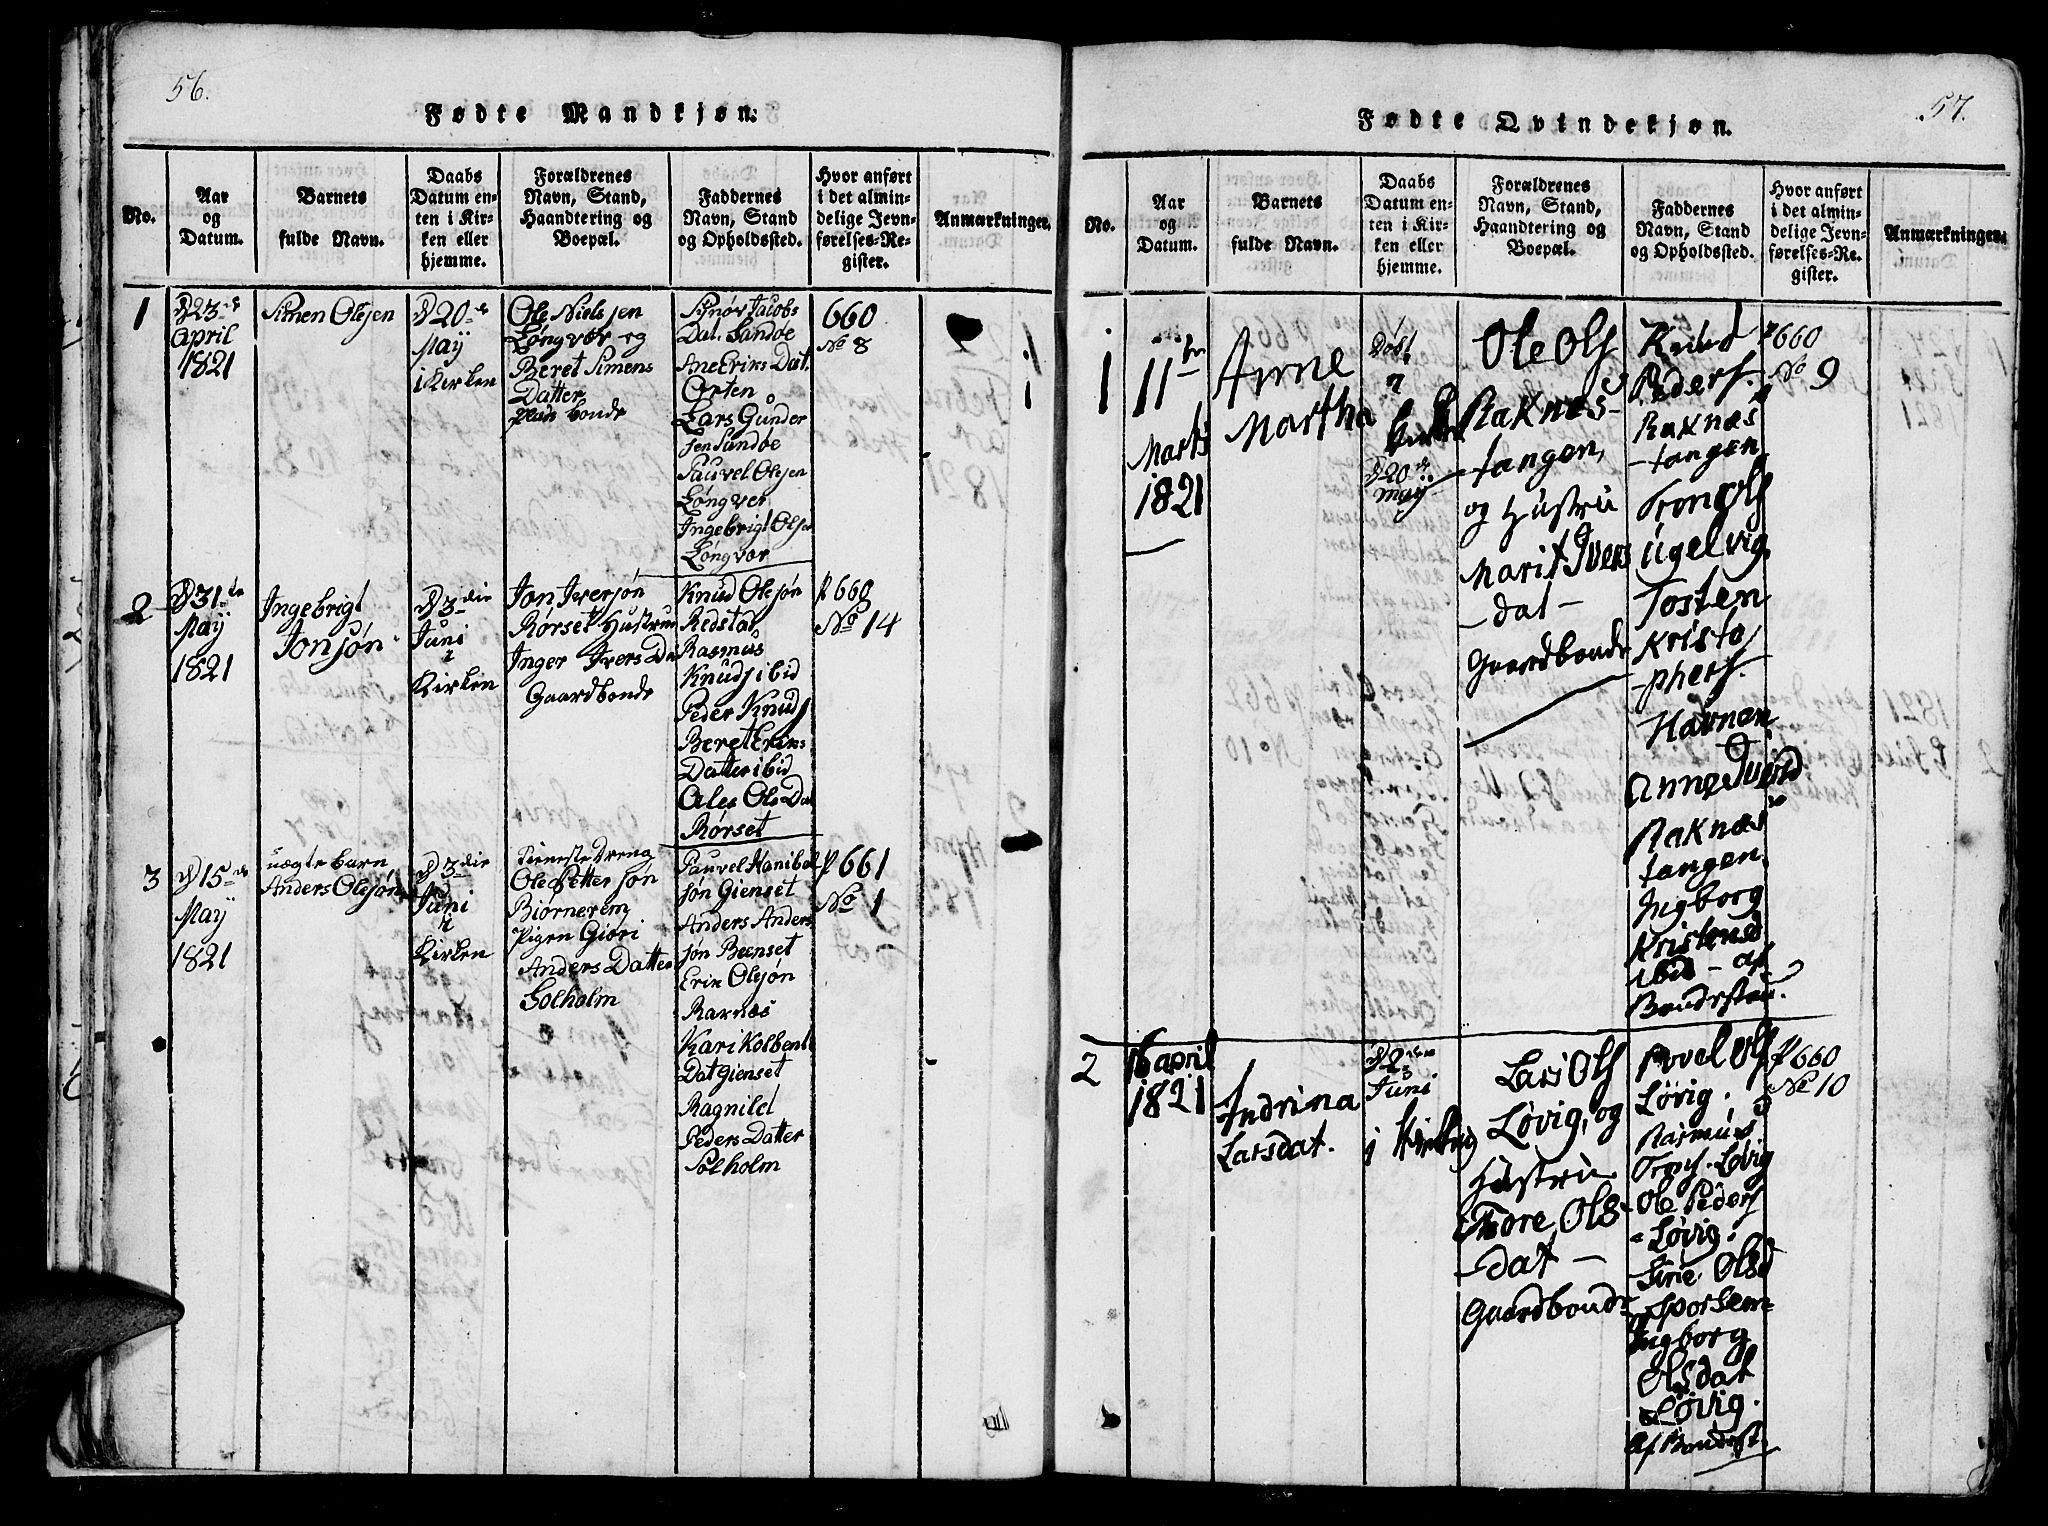 56.
Fødte Mandkjøn.
No.
Aar
og
Datum.
Barnets
fulde Navn.
Daabs
Datum en-
ten i Kir-
ken eller
hjemme.
Forældrenes
Navn, Stand,
Haandtering og
Boepæl.
Faddernes
Navn, Stand
og Opholdssted.
Hvor anført
i det almin-
delige Jevn-
førelses-Re-
gister.
Anmærkninger.
1
D 23de
April
1821
Simen Olesen
D 20de
May
i Kirken
Ole Nielssen
Løngvær og
Beret Simens
Datter
bonde
Jacobs
Dat. Sandøe
Ane Eriks Dat.
Orten
Lars Gunder
sen Sandøe
Pauvel Olesen
Løngver
Ingebrigt Olsen
Løngvær
660
No 8
2
D 31te
May
1821
Ingebrigt
Jonsøn
D 3die
Juni
i
Kirken
Jon Iversøn
Rørset Hustru
Inger Ivers Da
Gaardbonde
Knud Olesøn
Redstad
Rasmus
Knuds ibid
Peder Knuds
Beret Eriks
Datter ibid
Ales Ols Dat
Rørset
P 660
No 14
3
D 15de
May
1821
uægte barn
Anders Olesøn
D 3die
Juni
i
Kirken
Tieneste Dreng
Ole Petter søn
Biørnerem
Pigen Giøri
Anders Datter
Solholm
Pauvel Hanibal
søn Gienset
Anders Anders
søn Beenset
Erik Olesøn
Rarnæs
Kari Kolbent
Dat Gienset
Ragnild
Peders Datter
Solholm
P 661
No 1
57.
Fødte Qvindekjøn.
No.
Aar
og
Datum.
Barnets
fulde Navn.
Daabs
Datum en-
ten i Kir-
ken eller
hjemme.
Forældrenes
Navn, Stand,
Haandtering og
Boepæl.
Faddernes
Navn, Stand
og Opholdssted.
Hvor anført
i det almin-
delige Jevn-
førelses-Re-
gister.
Anmærkninger.
1
11te
Marts
1821
Anne
Martha
Døbt
i
D 20de
may
Ole Ols
Raknæs-
tangen,
og Hustru
Marit Ivers
-dat-
Gaardbonde
Knud
Peders.
Raknæs
-tangen
Trond Ols
Ugelvig,
Tosten
Kristo
-phers.
Havnen,
Anne Iversd
Raknæs
tangen,
Ingborg
Kristensd
ibid - af
Bondestan.
P 660
No 9
2
16 april
1821
Indrina
Larsdat.
D 2den
Juni
i Kirken
Lars Ols
Løvig, og
Hustru
Thore Ols-
-dat-
Gaardbonde
Povel Ols
Løvig.
Rasmus
Løvig
Ole Peders
-Løvig.
Sirie Olsd
Sporsem-
Ingborg
Olsdat
Løvig.
Af Bondest
P 660
No 10